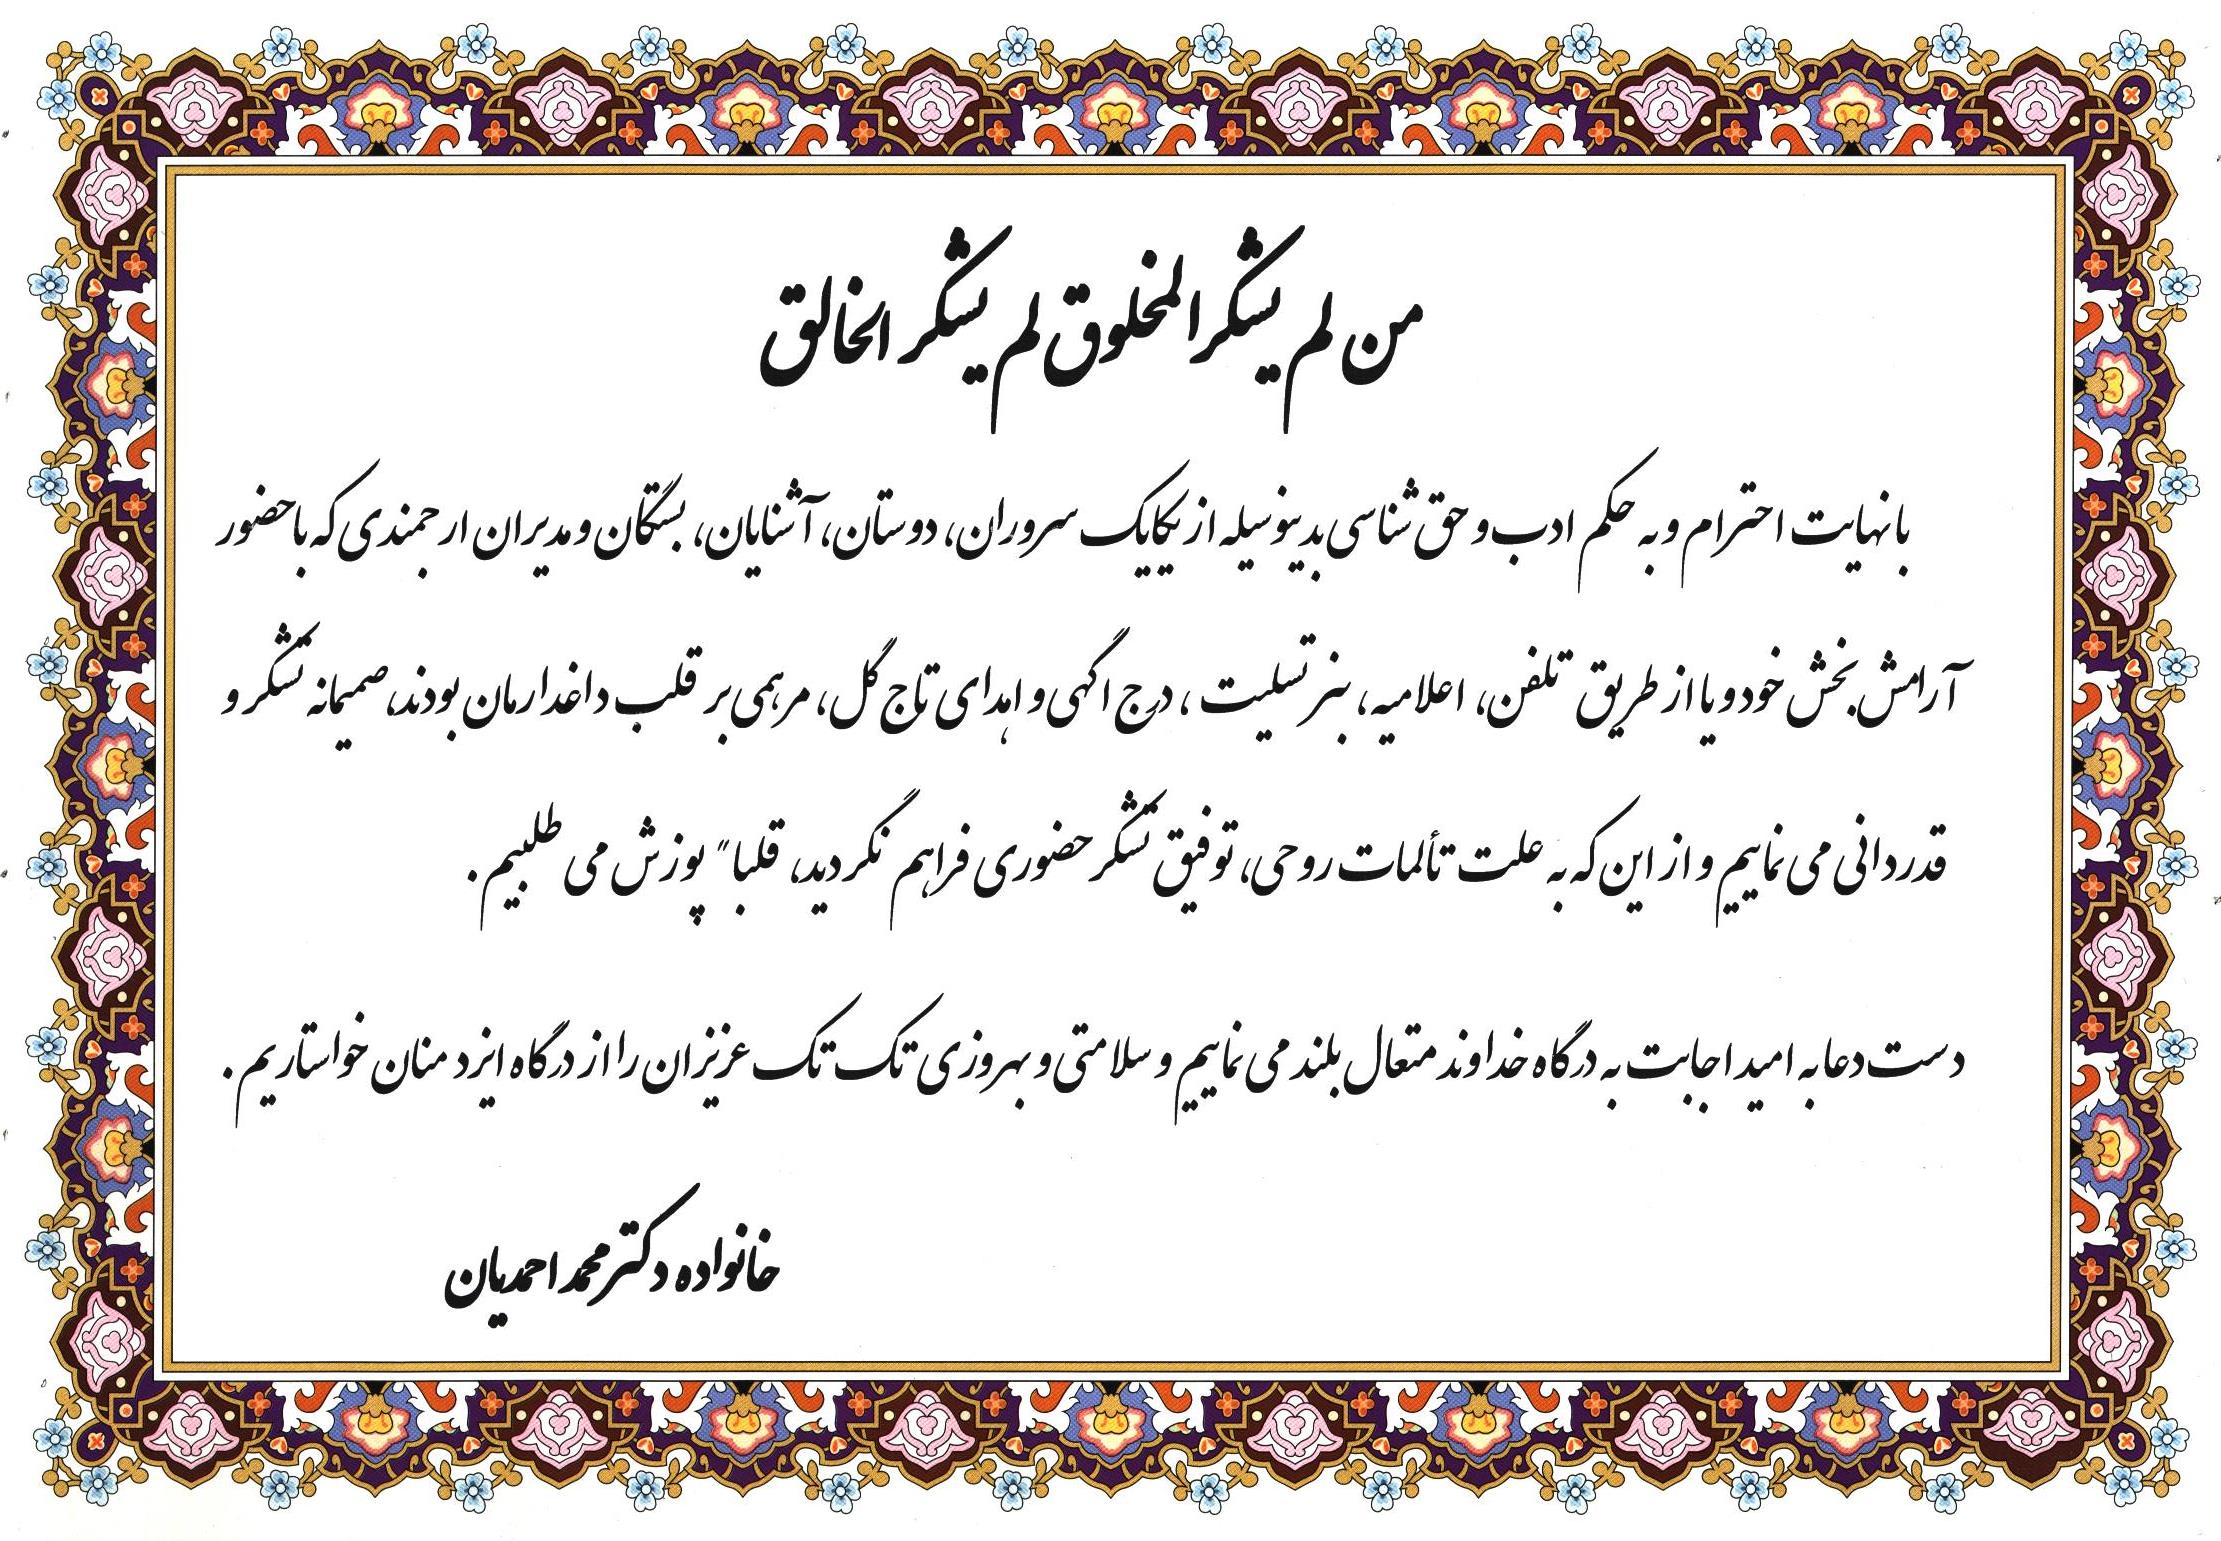 من لم یشکر المخلوق لم یشکر الخالق
با نهایت احترام و به حکم ادب و حق شناسی بدینوسیله از یکایک سروران، دوستان، آشنایان، بستگان و مدیران ارجمندی که با حضور
آرامش بخش خود و یا از طریق تلفن، اعلامیه، بنر تسلیت، درج اگهی و اهدای تاج گل، مرهمی بر قلب داغدارمان بودند، صمیمانه تشکر و
قدردانی می نماییم و از این که به علت تألمات روحی، توفیق تشکر حضوری فراهم نگردید، قلبا" پوزش می طلبیم.
دست دعا به امید اجابت به درگاه خداوند متعال بلند می نماییم و سلامتی و بهروزی تک تک عزیزان را از درگاه ایزد منان خواستاریم.
خانواده دکتر محمد احمدیان